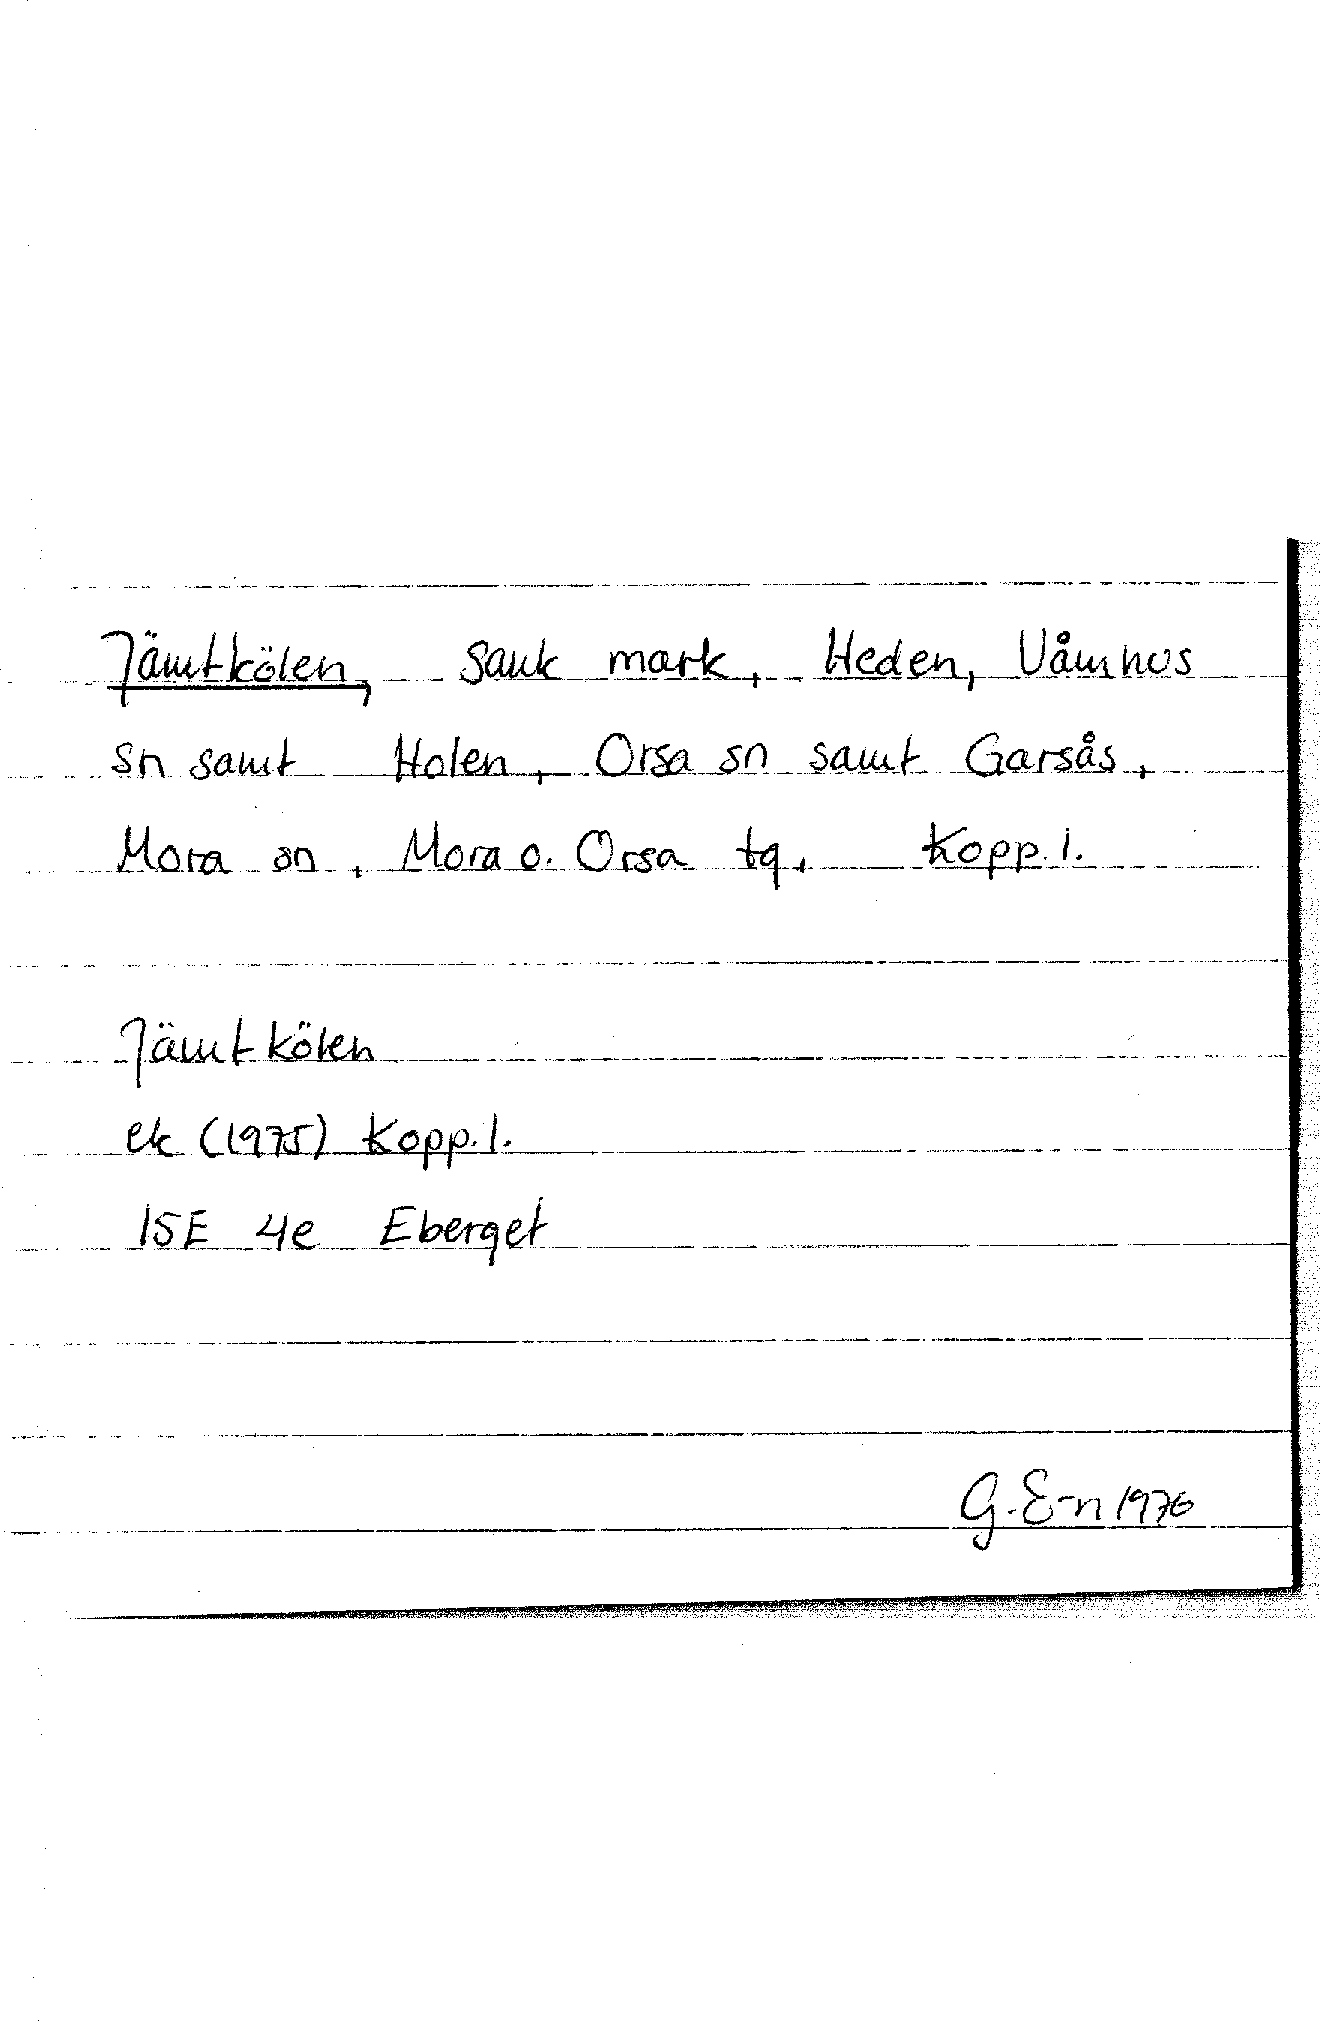 Jämtkölen, sank mark, Heden, Våmhus
sn samt Holen, Orsa sn samt Garsås,
Mora sn, Mora o. Orsa tg, Kopp. l.
Jämtkölen
ek (1975) Kopp. l.
15E 4e Eberget
G. E-n 1976